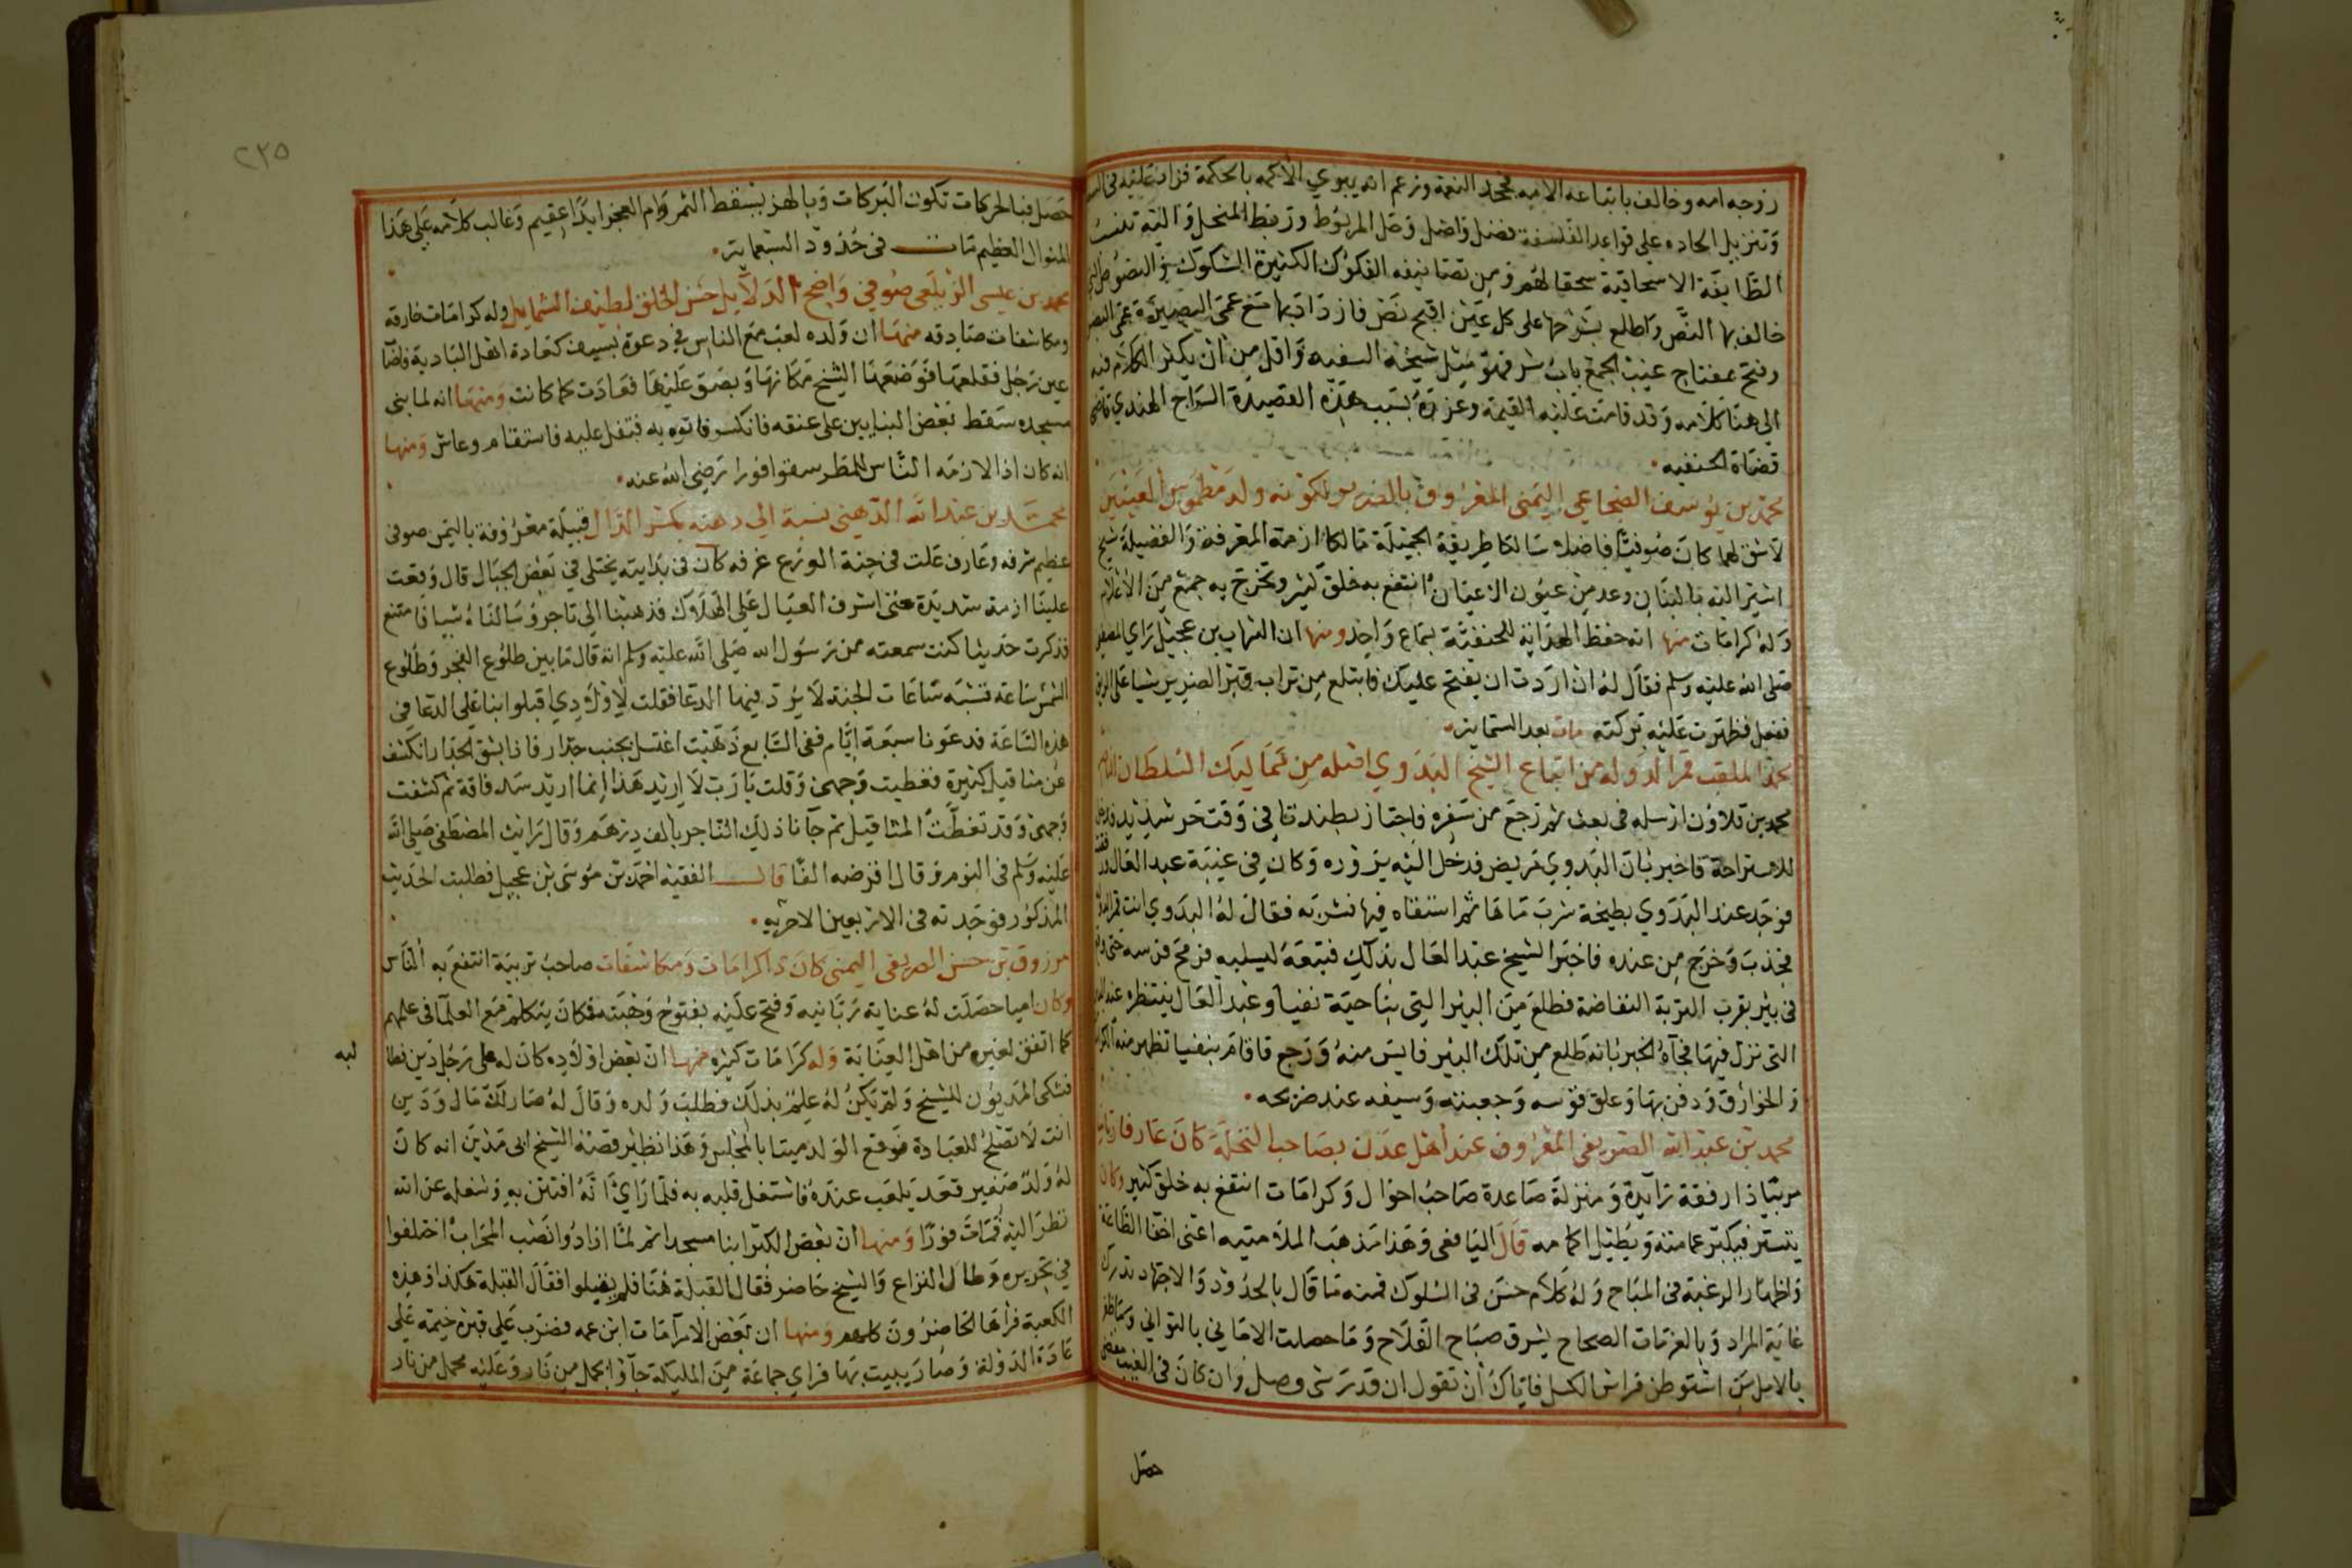 زوجه امه وخالف باتباعه الامه فجحد النعمة وزعم انه يبري الاكمه بالحكمة فزاد عليه في
وتنزيل الحاده على قواعد الفلسفة فضل واضل وصل المربوط وربط المنحل واليه تنسب
الطايفة الاسحاقية سحقا لهم ومن تصانيفه الفكوك الكثيرة الشكوك والنصوص التي
خالف بها النص واطلع بشرحها على كل عين اقبح نص فازداد بها مع عمى البصيرة عمى البصر
وفتح بمفتاح غيب الجمع باب شر فهو مثل شيخه السفيه واقل من ان يكثر الكلام فيه
الى هنا كلامه وقد قامت عليه القيمة وعزره بسبب هذه القصيدة السراج الهندي قاضي
قضاة الحنفيه
محمد بن يوسف الضجاعي اليمني المعروف بالضرير لكونه ولد مطموس العينين
لا شق لهما كان صوفيا فاضلا سالكا طريقة الجميلة مالكا ازمة المعرفة والفضيلة شيخ
اشير اليه بالبنان وعد من عيون الاعيان انتفع به خلق كثير وتخرج به جمع من الاعلام
وله كرامات منها انه حفظ الهداية للحنفية بسماع واحد ومنها ان الشهاب بن عجيل راي المصطفى
صلى الله عليه وسلم فقال له ان اردت ان يفتح عليك فابتلع من تراب قبر الضرير شيا على الريق
ففعل فظهرت عليه بركته مات بعد الستماية
محمد الملقب قمر الدولة من اتباع الشيخ البدوي اصله من مماليك السلطان الناصر
محمد بن قلاون ارسله في بعث ثم رجع من سفره فاجتاز بطندتا في وقت حر شديد فدخل
للاستراحة فاخبر بان البدوي مريض فدخل اليه يزوره وكان في غيبة عبد العال
فوجد عند البدوي بطيخة شرب ماها ثم استقاه فيها فشربه فقال له البدوي انت قمر الدولة
فجذب وخرج من عنده فاخبر الشيخ عبد العال بذلك فتبعه ليسلبه فرمح فرسه حتى
في بير بقرب التربة النفاضة فطلع من البير التي بناحية نفيا وعبد العال ينتظره عند البير
التي نزل فيها فجاه الخبر بانه طلع من تلك البير فايس منه ورجع فاقام بنفيا تظهر منه الكرامات
والخوارق ودفن بها وعلق قوسه وجعبته وسيفه عند ضريحه
محمد بن عبد الله الصريفي المعروف عند اهل عدن بصاحب النحلة كان عارفا
مربيا ذا رفقة زايدة ومنزلة صاعدة صاحب احوال وكرامات انتفع به خلق كثير وكان
يتستر فيكبر عمامته ويطيل اكمامه قال اليافعي وهذا مذهب الملامتيه اعني اخفا الطاعة
واظهار الرغبة في المباح وله كلام حسن في السلوك فمنه ما قال بالجد والاجتهاد تدرك
غاية المراد وبالعزمات الصحاح يشرق صباح الفلاح وما حصلت الاماني بالتواني
بالامل من استوطن فراش الكسل فاياك ان تقول ان قدر شي وصل وان كان في الغيب
حصل
٢٣٥
حصل فبالحركات تكون البركات وبالهز يسقط الثمر وام العجز ابدا عقيم وغالب كلامه على هذا
المنوال العظيم مات في حدود السبعماية
محمد بن عيسى الزيلعي صوفي واضح الدلايل حسن الخلق لطيف الشمايل وله كرامات خارقه
ومكاشفات صادقه منها ان ولده لعب مع الناس في دعوة بسيف كعادة اهل البادية
عين رجل فقلعها فوضعها الشيخ مكانها وبصق عليها فعادت كما كانت ومنها انه لما بنى
مسجده سقط بعض البنايين على عنقه فانكسر فاتوه به فتفل عليه فاستقام وعاش ومنها
انه كان اذا لازمه الناس للمطر سقوا فورا رضي الله عنه
محمد بن عبد الله الدهني نسبة الى دهنه بكسر الدال قبيلة معروفة باليمن صوفي
عظيم شرفه وعارف علت في جنة الورع غرفه كان في بدايته يختلي في بعض الجبال قال وقعت
علينا ازمة شديدة حتى اشرف العيال على الهلاك فذهبنا الى تاجر وسالناه شيا فامتنع
فذكرت حديثا كنت سمعته من رسول الله صلى الله عليه وسلم انه قال ما بين طلوع الفجر وطلوع
الشمس ساعة تشبه ساعات الجنة لا يرد فيها الدعا فقلت لاولادي اقبلوا بنا على الدعا في
هذه الساعة فدعونا سبعة ايام ففي السابع ذهبت اغتسل بجنب جدار فاذا بشق الجدار انكشف
عن مثاقيل كثيرة فغطيت وجهي وقلت يا رب لا اريد هذا انما اريد سد فاقة ثم كشفت
وجهي وقد تغطت المثاقيل ثم جآنا ذلك التاجر بالف درهم وقال رايت المصطفى صلى الله
عليه وسلم في النوم وقال اقرضه الفا قال الفقيه احمد بن موسى بن عجيل فطلبت الحديث
المذكور فوجدته في الاربعين الاجريه
مرزوق بن حسن الصريفي اليمني كان ذا كرامات ومكاشفات صاحب تربية انتفع به الناس
وكان اميا حصلت له عناية ربانيه وفتح عليه بفتوح وهبته فكان يتكلم مع العلما في علمهم
كما اتفق لغيره من اهل العناية وله كرامات كثيره منها ان بعض اولاده كان له على رجل دين فطا
لبه
فشكى المديون للشيخ ولم يكن له علم بذلك فطلب ولده وقال له صار لك مال ودين
انت لا تصلح للعبادة فوقع الولد ميتا بالمجلس وهذا نظير قصة الشيخ ابى مدين انه كان
له ولد صغير فقعد يلعب عنده فاشتغل قلبه به فلما راي انه افتتن به وشغله عن الله
نظر اليه فمات فورا ومنها ان بعض الكبرا بنا مسجدا ثم لما ارادوا نصب المحراب اختلفوا
في تحريره وطال النزاع والشيخ حاضر فقال القبلة هنا فلم يقبلوا فقال القبلة هكذا وهذه
الكعبة فراها الحاضرون كلهم ومنها ان بعض الامرآ مات ابن عمه فضرب على قبره خيمة على
عادة الدولة وصار يبيت بها فراي جماعة من المليكة جآوا بحمل من نار وعليه محمل من نار